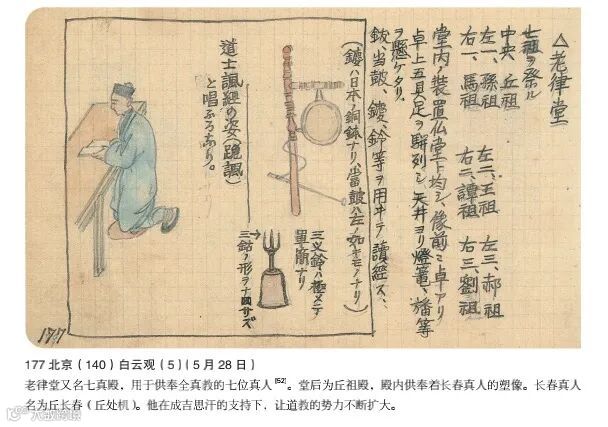 △老律堂
七祖ヲ祭ル
中央 丘祖
左一、孫祖 左二、王祖 左三、郝祖
右一、馬祖 右二、譚祖 右三、劉祖
堂内ノ装置仏堂ト均シ、像前ニ卓アリ
卓上五具足ヲ駢列シ 天井ヨリ燈籠、旛等
ヲ懸ケタリ。
鈸、当鼓、鐃、鈴等ヲ用ヰテ讀經ス、
(鐃ハ日本ノ銅鉢ナリ、當鼓ハ左ノ如キモノナリ)
三叉鈴ハ極メテ
單簡ナリ
三鈷ノ形ヲナサズ
道士諷經の姿(跪諷)
と唱ふるなり。
177
177 北京（140）白云观（5）（5月28日）
老律堂又名七真殿，用于供奉全真教的七位真人[52]。堂后为丘祖殿，殿内供奉着长春真人的塑像。长春真人
名为丘长春（丘处机）。他在成吉思汗的支持下，让道教的势力不断扩大。